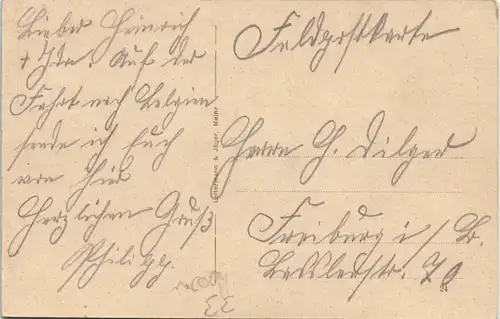 Lieber Heinrich
+ Ida! Auf der
Fahrt nach Belgien
sende ich Euch
von hier
Herzlichen Gruß
Philipp.
Feldpostkarte
Herrn H. Dilger
Freiburg i/Br.
Lesslerstr. 70
& Jäger, Mainz
24
33